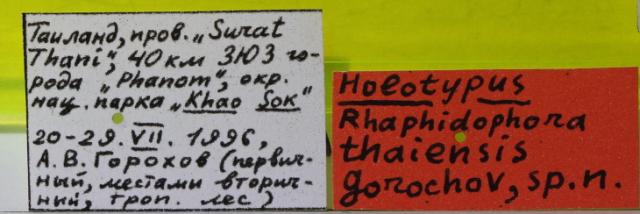 Таиланд, пров. „Surat
Thani", 40 км ЗЮЗ го-
рода „Phanom", окр.
нац. парка „Khao Sok"
20-29. VII. 1996,
А. В. Горохов (первич-
ный, местами вторич-
ный, троп. лес)
Holotypus
Rhaphidophora
thaiensis
gorochov, sp. n.